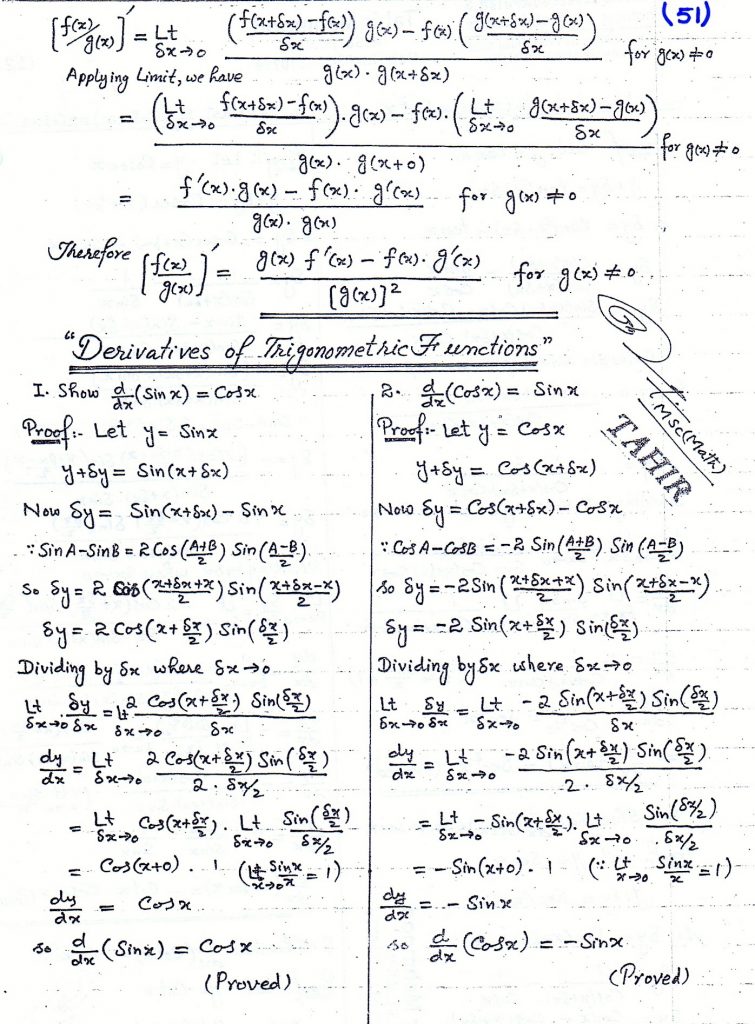 (51)
[f(x)/g(x)]′ = Lt δx→0 ((f(x+δx)-f(x))/δx) g(x) - f(x) ((g(x+δx)-g(x))/δx) / g(x)·g(x+δx) for g(x)≠0
Applying Limit, we have
= (Lt δx→0 (f(x+δx)-f(x))/δx)·g(x) - f(x)·(Lt δx→0 (g(x+δx)-g(x))/δx) / g(x)·g(x+0) for g(x)≠0
= f′(x)·g(x) - f(x)·g′(x) / g(x)·g(x) for g(x)≠0
Therefore [f(x)/g(x)]′ = g(x) f′(x) - f(x)·g′(x) / [g(x)]² for g(x)≠0
"Derivatives of Trigonometric Functions"
I. Show d/dx (Sin x) = Cosx
Proof:- Let y = Sinx
y+δy = Sin(x+δx)
Now δy = Sin(x+δx) - Sinx
∵ SinA-SinB = 2Cos(A+B/2) Sin(A-B/2)
So δy = 2 Cos(x+δx+x/2) Sin(x+δx-x/2)
δy = 2Cos(x+δx/2) Sin(δx/2)
Dividing by δx where δx→0
Lt δx→0 δy/δx = Lt δx→0 2 Cos(x+δx/2) Sin(δx/2) / δx
dy/dx = Lt δx→0 2 Cos(x+δx/2) Sin(δx/2) / 2·δx/2
= Lt δx→0 Cos(x+δx/2)· Lt δx→0 Sin(δx/2) / δx/2
= Cos(x+0)·1 (Lt x→0 Sinx/x = 1)
dy/dx = Cosx
so d/dx (Sinx) = Cosx
(Proved)
2. d/dx (Cosx) = Sinx
Proof:- Let y = Cosx
y+δy = Cos(x+δx)
Now δy = Cos(x+δx) - Cosx
∵ CosA-CosB = -2 Sin(A+B/2) Sin(A-B/2)
so δy = -2Sin(x+δx+x/2) Sin(x+δx-x/2)
δy = -2 Sin(x+δx/2) Sin(δx/2)
Dividing by δx where δx→0
Lt δx→0 δy/δx = Lt δx→0 -2 Sin(x+δx/2) Sin(δx/2) / δx
dy/dx = Lt δx→0 -2 Sin(x+δx/2) Sin(δx/2) / 2·δx/2
= Lt δx→0 -Sin(x+δx/2)· Lt δx→0 Sin(δx/2) / δx/2
= -Sin(x+0)·1 (∵ Lt x→0 Sinx/x = 1)
dy/dx = -Sinx
so d/dx (Cosx) = -Sinx
(Proved)
T. MSc(Math)
TAHIR